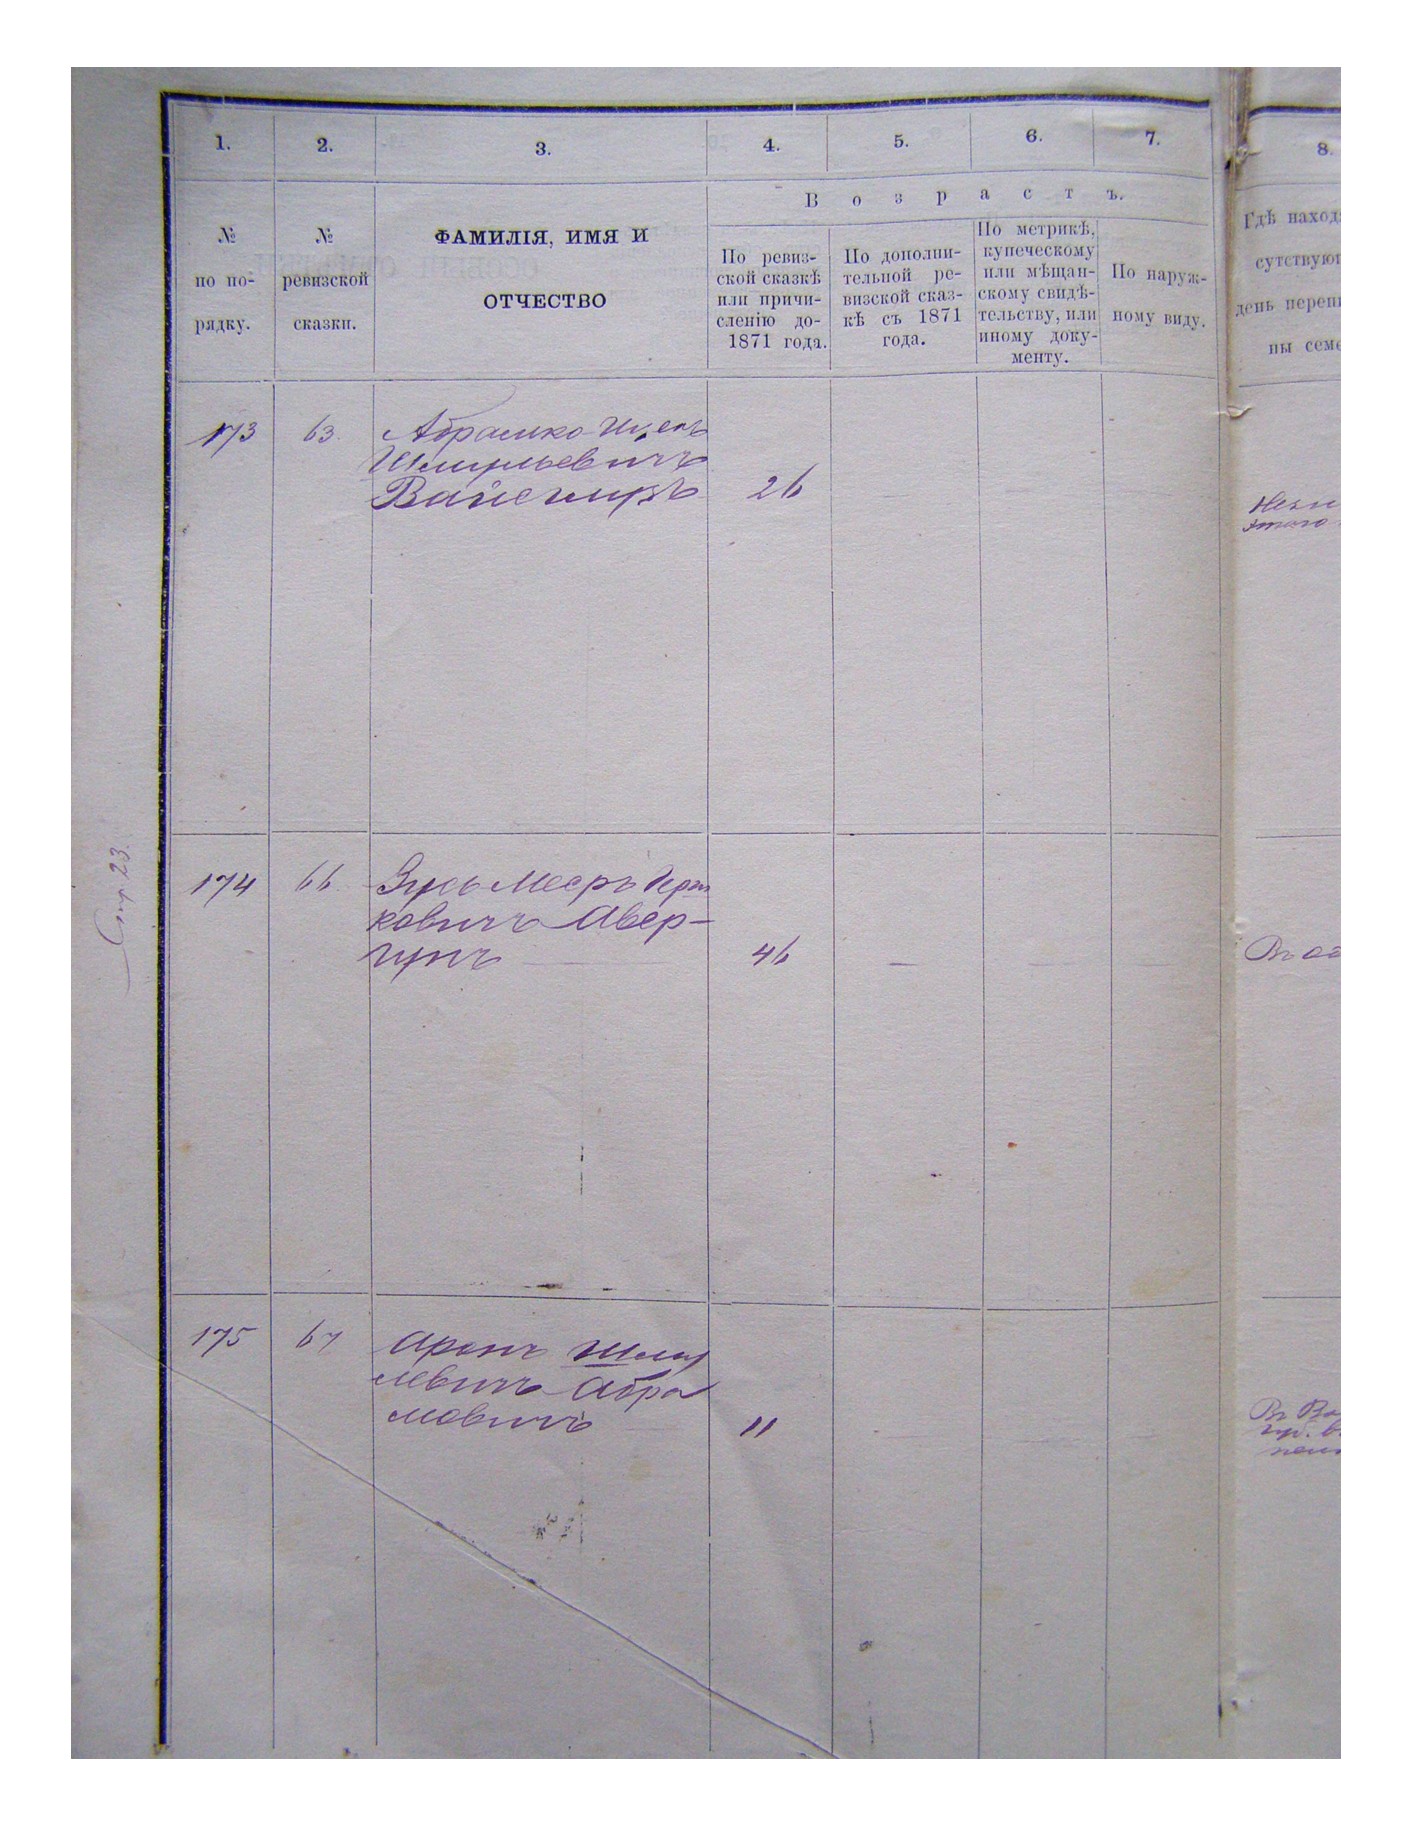 1. 2. 3. 4. 5. 6. 7. 8.
Возрастъ.
№
по по-
рядку.
№
ревизской
сказки.
ФАМИЛІЯ, ИМЯ И
ОТЧЕСТВО
По ревиз-
ской сказкѣ
или причи-
сленію до-
1871 года.
По дополни-
тельной ре-
визской сказ-
кѣ съ 1871
года.
По метрикѣ,
купеческому
или мѣщан-
скому свидѣ-
тельству, или
иному доку-
менту.
По наруж-
ному виду.
Гдѣ наход
сутствуют
день переп
ны семе
173 63. Абрамко
Шмульевичъ
26
174 66. Зусь Мееръ Герш
ковичъ Авер-
гунъ 46
Въ
175 67 Аронъ Шму
левичъ Абра
мовичъ 11
Въ
Стр. 23.